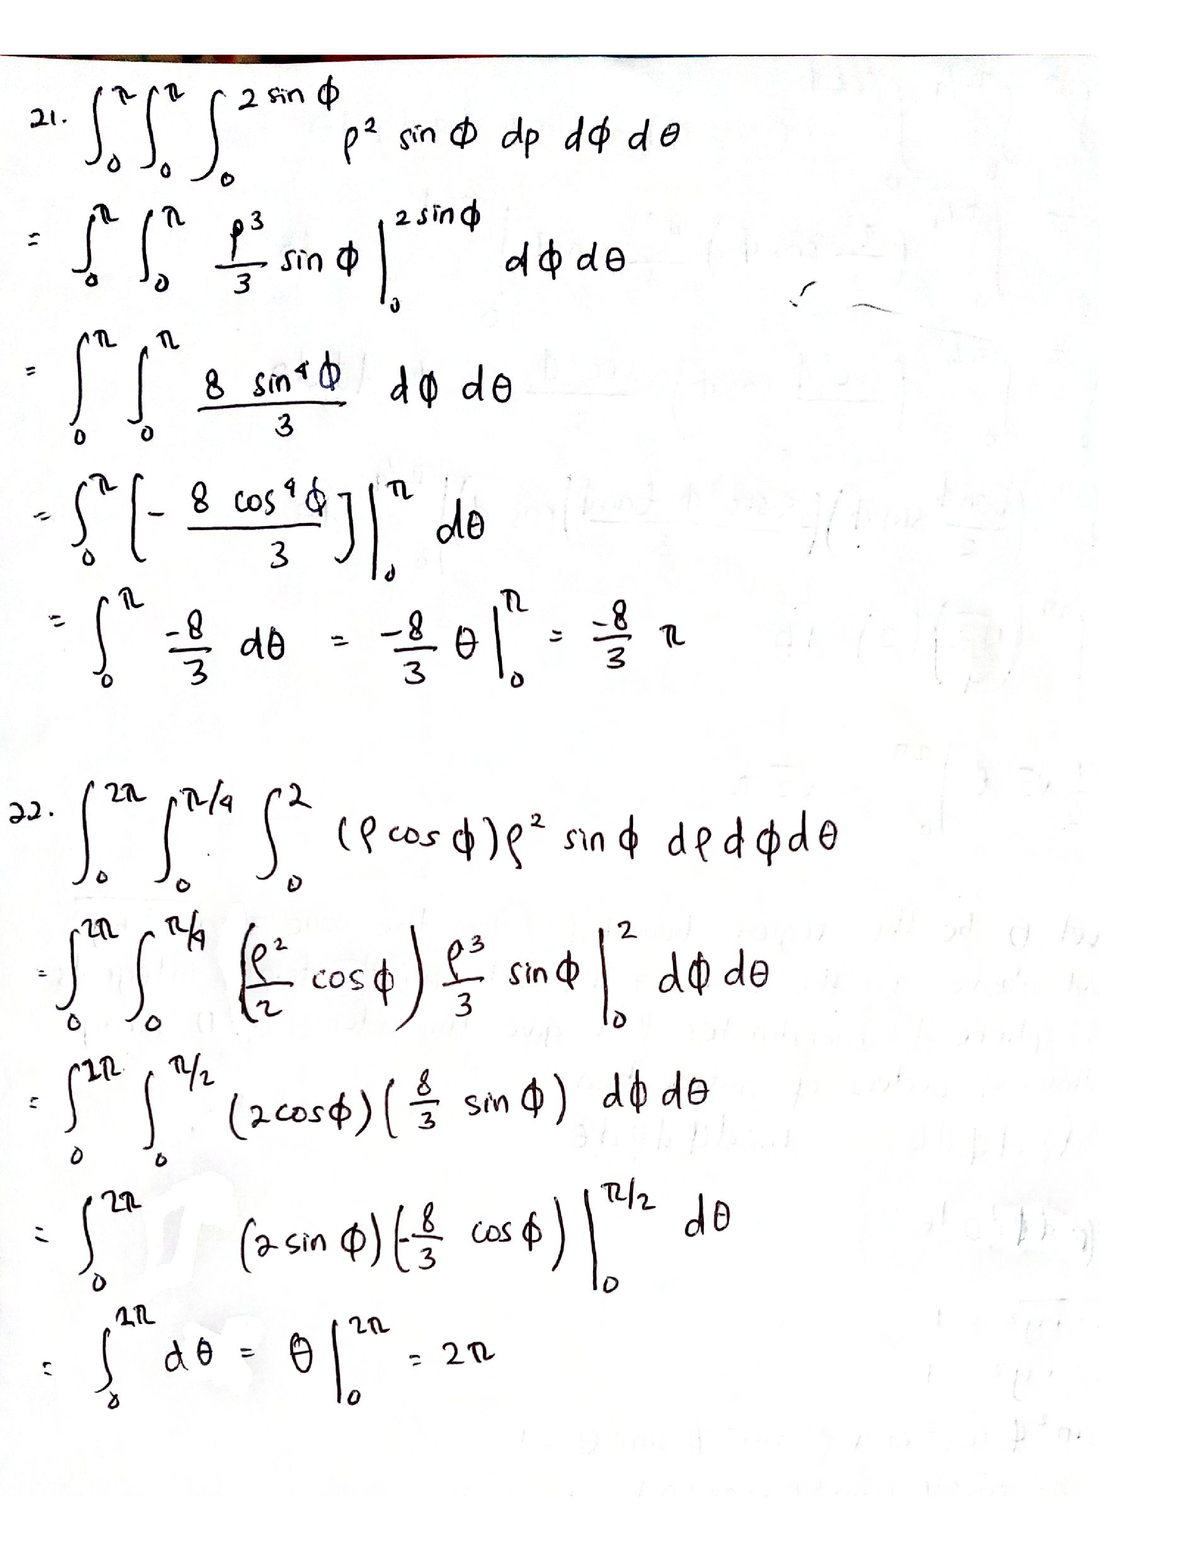 21. ∫₀^π ∫₀^π ∫₀^{2 sin φ} ρ² sin φ dρ dφ dθ
= ∫₀^π ∫₀^π ρ³/3 sin φ |₀^{2 sin φ} dφ dθ
= ∫₀^π ∫₀^π (8 sin⁴ φ)/3 dφ dθ
= ∫₀^π [- (8 cos⁴ φ)/3] |₀^π dθ
= ∫₀^π -8/3 dθ = -8/3 θ |₀^π = -8/3 π
22. ∫₀^{2π} ∫₀^{π/4} ∫₀^2 (ρ cos φ) ρ² sin φ dρ dφ dθ
= ∫₀^{2π} ∫₀^{π/4} (ρ²/2 cos φ) ρ³/3 sin φ |₀^2 dφ dθ
= ∫₀^{2π} ∫₀^{π/2} (2 cos φ) (8/3 sin φ) dφ dθ
= ∫₀^{2π} (2 sin φ) (-8/3 cos φ) |₀^{π/2} dθ
= ∫₀^{2π} dθ = θ |₀^{2π} = 2π